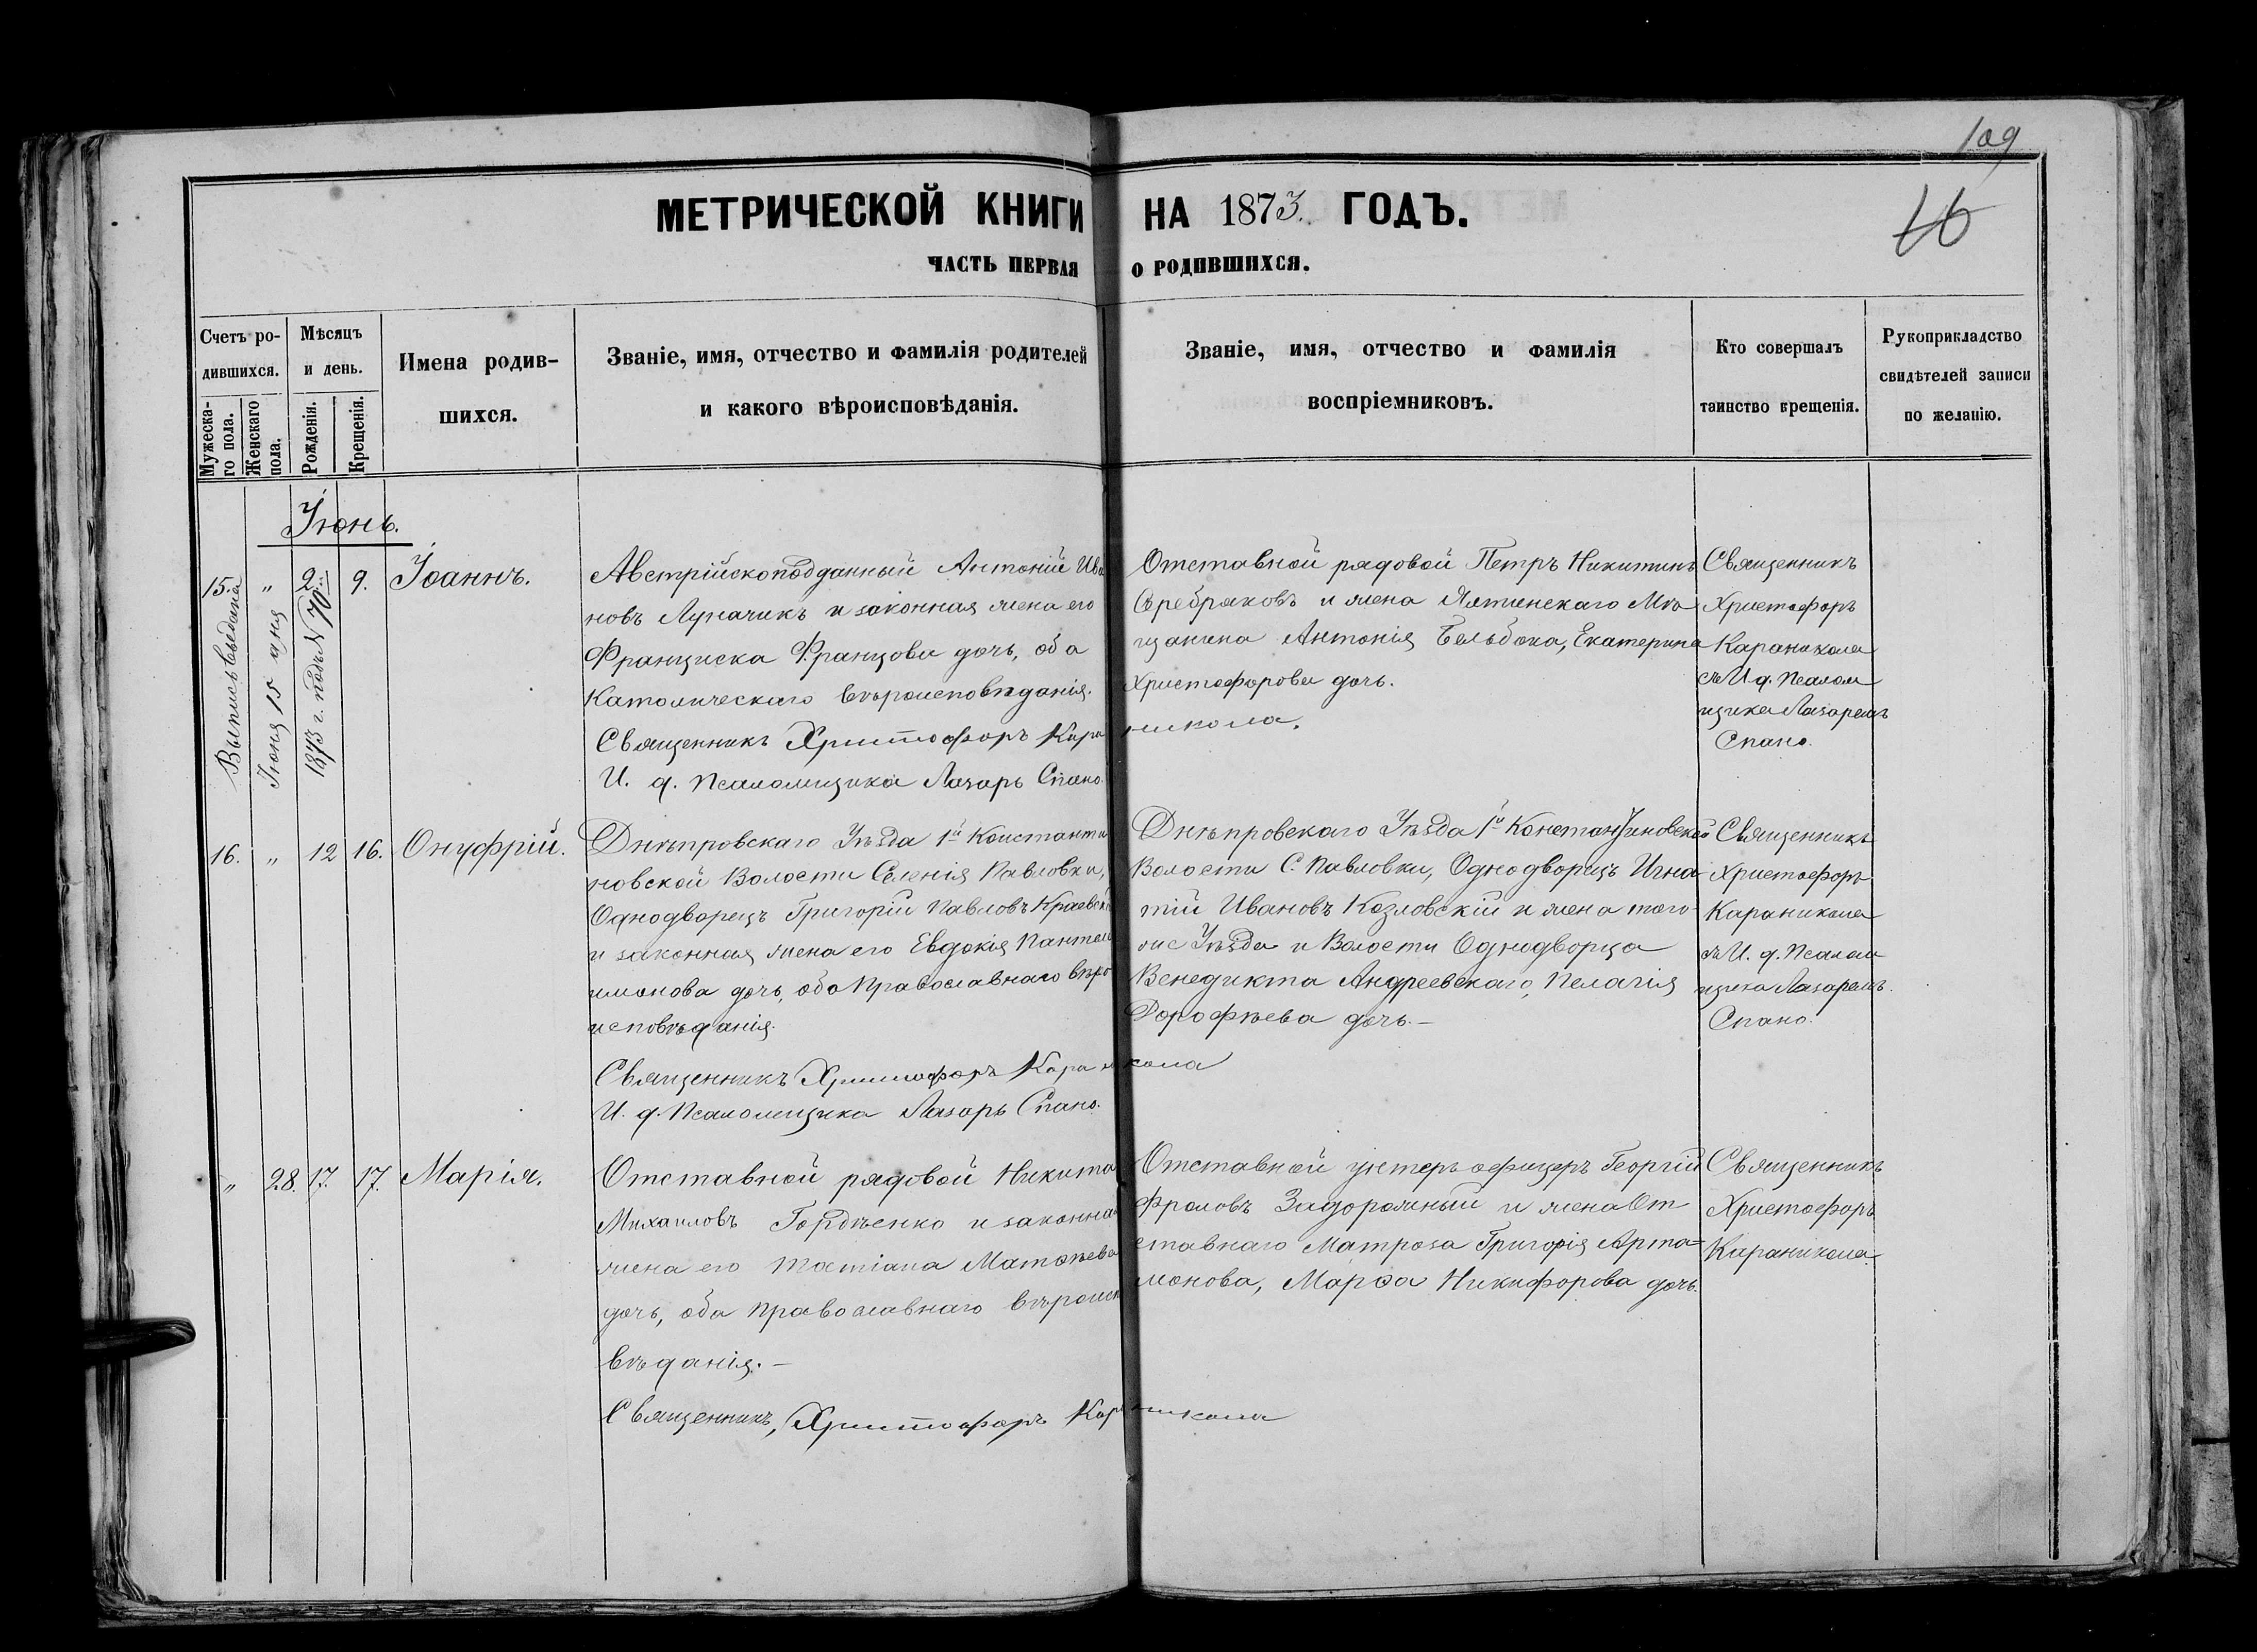 109
16
МЕТРИЧЕСКОЙ КНИГИ НА 1873. ГОДЪ.
ЧАСТЬ ПЕРВАЯ О РОДИВШИХСЯ.
Счетъ ро-
дившихся.
Мужеска-
го пола.
Женскаго
пола.
Мѣсяцъ
и день.
Рожденія.
Крещенія.
Имена родив-
шихся.
Званіе, имя, отчество и фамилія родителей
и какого вѣроисповѣданія.
Званіе, имя, отчество и фамилія
воспріемниковъ.
Кто совершалъ
таинство крещенія.
Рукоприкладство
свидѣтелей записи
по желанію.
Іюнь.
15. " 2. 9. Іоаннъ.
Выпись выдана
Іюня 15 дня
1873 г. подъ N 70
Австрійскоподданный Антоній Ива
новъ Луначикъ и законная жена его
Франциска Францова дочь, оба
Католическаго вѣроисповѣданія.
Священникъ Христофоръ Караникола.
И. д. Псаломщика Лазарь Спано.
Отставной рядовой Петръ Никитинъ
Серебряковъ и жена Ялтинскаго Мѣ
щанина Антонія Бельбока, Екатерина
Христофорова дочь.
Священникъ
Христофоръ
Караникола
съ И д. Псалом
щика Лазаремъ
Спано.
16. " 12 16. Онуфрій.
Днѣпровскаго Уѣзда 1й Константи
новской Волости Селенія Павловки,
Однодворецъ Григорій Павловъ Краевск
и законная жена его Евдокія Пантеле
имонова дочь, оба Православнаго вѣро
исповѣданія.
Священникъ Христофоръ Караникола
И. д. Псаломщика Лазарь Спано.
Днѣпровскаго Уѣзда 1й Константиновской
Волости С. Павловки, Однодворецъ Игна
тій Ивановъ Козловскій и жена того
же Уѣзда и Волости Однодворца
Венедикта Андреевскаго, Пелагія
Дорофѣева дочь.—
Священникъ
Христофоръ
Караникола
съ И. д. Псалом
щика Лазаремъ.
Спано.
" 28. 17. 17. Марія.
Отставной рядовой Никита
Михаиловъ Гордѣенко и законная
жена его Татіана Матѳѣева
дочь, оба православнаго вѣроиспо
вѣданія.—
Священникъ, Христофоръ Караникола
Отставной унтеръ офицеръ Георгій
Фроловъ Задорожный и жена От
ставнаго Матроза Григорія Арта=
монова, Марѳа Никифорова дочь.
Священникъ
Христофоръ
Караникола